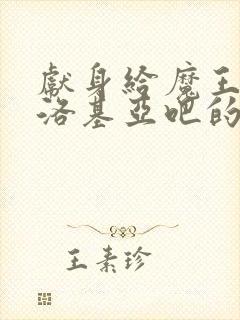 獻身給魔王
洛基亞吧的
王素珍